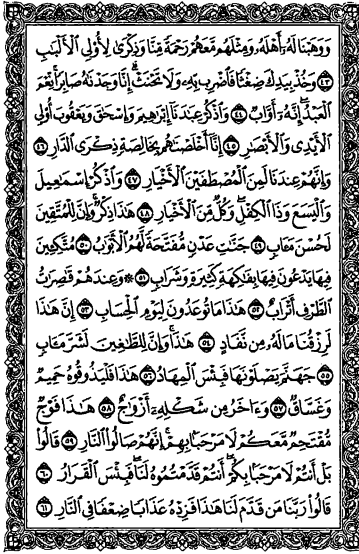 وَوَهَبْنَا لَهُۥٓ أَهْلَهُۥ وَمِثْلَهُم مَّعَهُمْ رَحْمَةً مِّنَّا وَذِكْرَىٰ لِأُو۟لِى ٱلْأَلْبَٰبِ
﴿٤٣﴾ وَخُذْ بِيَدِكَ ضِغْثًا فَٱضْرِب بِّهِۦ وَلَا تَحْنَثْ ۗ إِنَّا وَجَدْنَٰهُ صَابِرًا ۚ نِّعْمَ
ٱلْعَبْدُ ۖ إِنَّهُۥٓ أَوَّابٌ ﴿٤٤﴾ وَٱذْكُرْ عِبَٰدَنَآ إِبْرَٰهِيمَ وَإِسْحَٰقَ وَيَعْقُوبَ أُو۟لِى
ٱلْأَيْدِى وَٱلْأَبْصَٰرِ ﴿٤٥﴾ إِنَّآ أَخْلَصْنَٰهُم بِخَالِصَةٍ ذِكْرَى ٱلدَّارِ ﴿٤٦﴾
وَإِنَّهُمْ عِندَنَا لَمِنَ ٱلْمُصْطَفَيْنَ ٱلْأَخْيَارِ ﴿٤٧﴾ وَٱذْكُرْ إِسْمَٰعِيلَ
وَٱلْيَسَعَ وَذَا ٱلْكِفْلِ ۖ وَكُلٌّ مِّنَ ٱلْأَخْيَارِ ﴿٤٨﴾ هَٰذَا ذِكْرٌ ۚ وَإِنَّ لِلْمُتَّقِينَ
لَحُسْنَ مَـَٔابٍ ﴿٤٩﴾ جَنَّٰتِ عَدْنٍ مُّفَتَّحَةً لَّهُمُ ٱلْأَبْوَٰبُ ﴿٥٠﴾ مُتَّكِـِٔينَ
فِيهَا يَدْعُونَ فِيهَا بِفَٰكِهَةٍ كَثِيرَةٍ وَشَرَابٍ ﴿٥١﴾ ۞ وَعِندَهُمْ قَٰصِرَٰتُ
ٱلطَّرْفِ أَتْرَابٌ ﴿٥٢﴾ هَٰذَا مَا تُوعَدُونَ لِيَوْمِ ٱلْحِسَابِ ﴿٥٣﴾ إِنَّ هَٰذَا
لَرِزْقُنَا مَا لَهُۥ مِن نَّفَادٍ ﴿٥٤﴾ هَٰذَا ۚ وَإِنَّ لِلطَّٰغِينَ لَشَرَّ مَـَٔابٍ
﴿٥٥﴾ جَهَنَّمَ يَصْلَوْنَهَا فَبِئْسَ ٱلْمِهَادُ ﴿٥٦﴾ هَٰذَا فَلْيَذُوقُوهُ حَمِيمٌ
وَغَسَّاقٌ ﴿٥٧﴾ وَءَاخَرُ مِن شَكْلِهِۦٓ أَزْوَٰجٌ ﴿٥٨﴾ هَٰذَا فَوْجٌ
مُّقْتَحِمٌ مَّعَكُمْ ۖ لَا مَرْحَبًۢا بِهِمْ ۚ إِنَّهُمْ صَالُوا۟ ٱلنَّارِ ﴿٥٩﴾ قَالُوا۟
بَلْ أَنتُمْ لَا مَرْحَبًۢا بِكُمْ ۖ أَنتُمْ قَدَّمْتُمُوهُ لَنَا ۖ فَبِئْسَ ٱلْقَرَارُ ﴿٦٠﴾
قَالُوا۟ رَبَّنَا مَن قَدَّمَ لَنَا هَٰذَا فَزِدْهُ عَذَابًا ضِعْفًا فِى ٱلنَّارِ ﴿٦١﴾